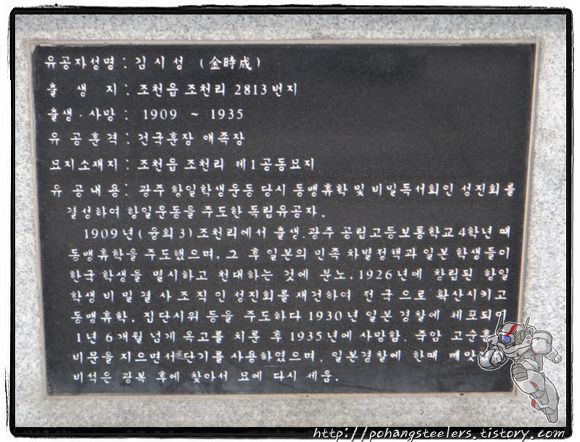 유공자성명 : 김시성 (金時成)
출 생 지 : 조천읍 조천리 2813번지
출생·사망 : 1909 ~ 1935
유 공 훈 격 : 건국훈장 애족장
묘지소재지 : 조천읍 조천리 제1공동묘지
유 공 내 용 : 광주 항일학생운동 당시 동맹휴학 및 비밀독서회인 성진회를
결성하여 항일운동을 주도한 독립유공자.
1909년 (융희3) 조천리에서 출생. 광주 공립고등보통학교 4학년 때
동맹휴학을 주도했으며, 그 후 일본의 민족 차별정책과 일본 학생들이
한국 학생을 멸시하고 천대하는 것에 분노. 1926년에 창립된 항일
학생 비밀 결사 조직인 성진회를 재건하여 전국으로 확산시키고
동맹휴학, 집단시위 등을 주도하다 1930년 일본 경찰에 체포되어
1년 6개월 넘게 옥고를 치룬 후 1935년에 사망함. 죽암 고순흠
비문을 지으면서 단기를 사용하였으며, 일본경찰에 한때 빼앗
비석은 광복 후에 찾아서 묘에 다시 세움.
http://pohangsteelers.tistory.com